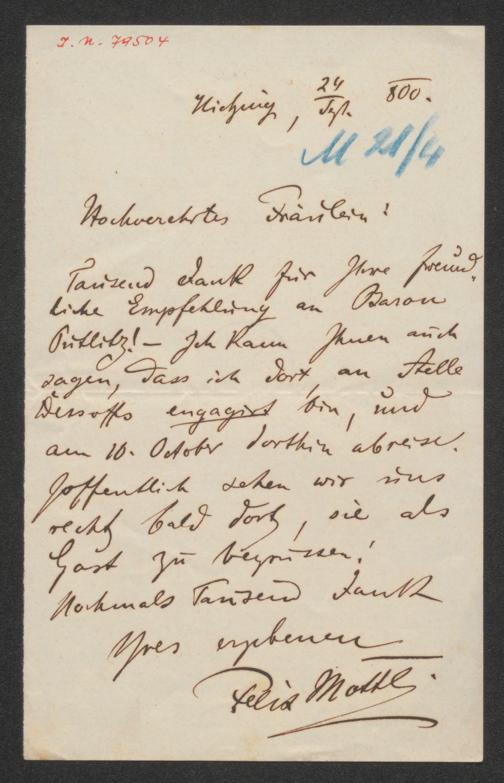 I. N. 79504
Hietzing, 24/Sept. 800.
M 21/4
Hochverehrtes Fräulein!
Tausend Dank für Ihre freund-
liche Empfehlung an Baron
Putlitz! – Ich kann Ihnen auch
sagen, dass ich dort, an Stelle
Dessoffs engagirt bin, und
am 10. October dorthin abreise.
Hoffentlich sehen wir uns
recht bald dort, sie als
Gast zu begrüssen!
Nochmals Tausend Dank
Ihres ergebenen
Felix Mottl